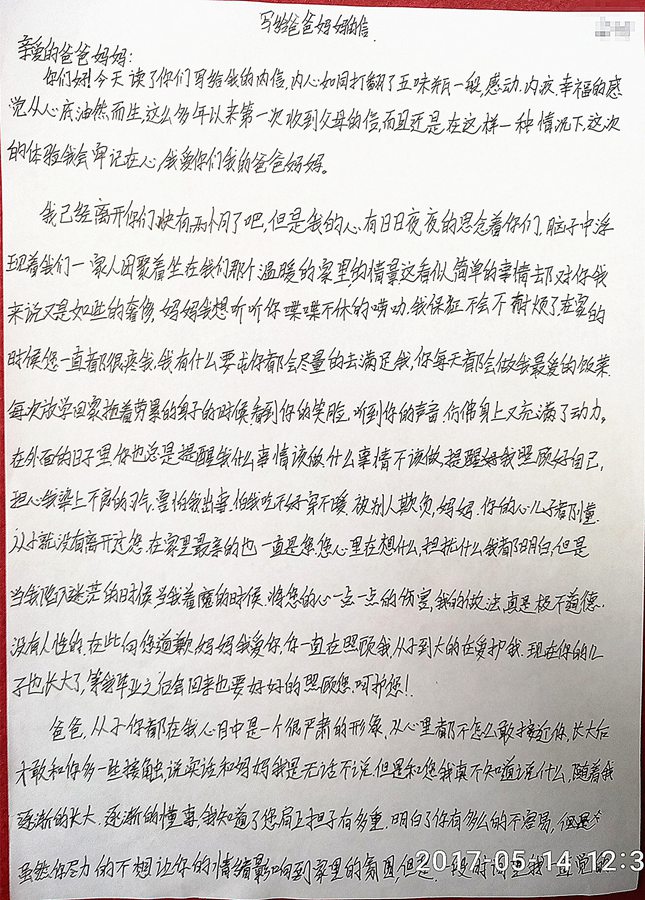 写给爸爸妈妈的信
亲爱的爸爸妈妈:
你们好!今天读了你们写给我的内信,内心如同打翻了五味瓶一般,感动、内疚、幸福的感
觉从心底油然而生,这么多年以来第一次收到父母的信,而且还是在这样一种情况下,这次
的体验我会牢记在心,我爱你们我的爸爸妈妈。
我已经离开你们快有两个月了吧,但是我的心有日日夜夜的思念着你们,脑子中浮
现着我们一家人团聚着坐在我们那个温暖的家里的情景这看似简单的事情却对你我
来说又是如些的奢侈,妈妈我想听听你喋喋不休的唠叨,我保证不会不耐烦了,在家的
时候您一直都很疼我,我有什么要求你都会尽量的去满足我,你每天都会做我最爱的饭菜
每次放学回家拖着劳累的身子的时候看到你的笑脸,听到你的声音,仿佛身上又充满了动力,
在外面的日子里你也总是提醒我什么事情该做,什么事情不该做,提醒我照顾好自己,
担心我染上不良的习气,害怕我出事,怕我吃不好穿不暖,被别人欺负,妈妈,你的心儿子都懂.
从小就没有离开过您,在家里最亲的也一直是您,您心里在想什么,担忧什么我都明白,但是
当我陷入迷茫的时候当我着魔的时候,将您的心一点一点的伤害,我的做法真是极不道德.
没有人性的,在此向您道歉,妈妈我爱你,你一直在照顾我,从小到大的在爱护我,现在你的儿
子也长大了,等我毕业之后会回来也要好好的照顾您,呵护您!
爸爸,从小你都在我心目中是一个很严肃的形象,从心里都不怎么敢接近你,长大后
才敢和你多一些接触,说实话和妈妈我是无话不说,但是和您我真不知道说什么,随着我
逐渐的长大,逐渐的懂事,我知道了您肩上担子有多重,明白了你有多么的不容易,但是
虽然你尽力的不想让你的情绪影响到家里的氛围,但是
2017-05-14 12:3